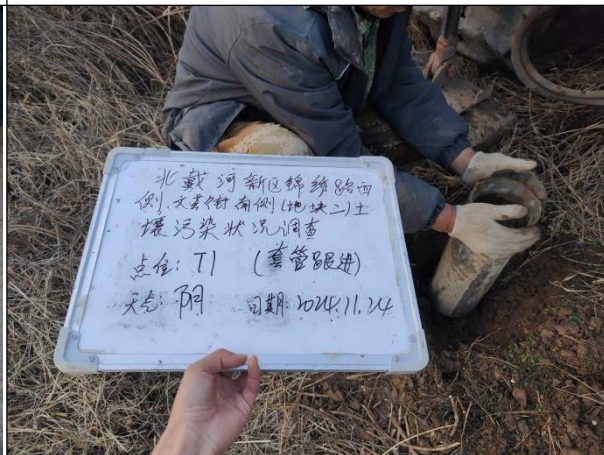 北戴河新区锦绣路西
侧、大秦街南侧(地块二)土
壤污染状况调查
点位: T1 (套管跟进)
天气: 阴 日期: 2024.11.24